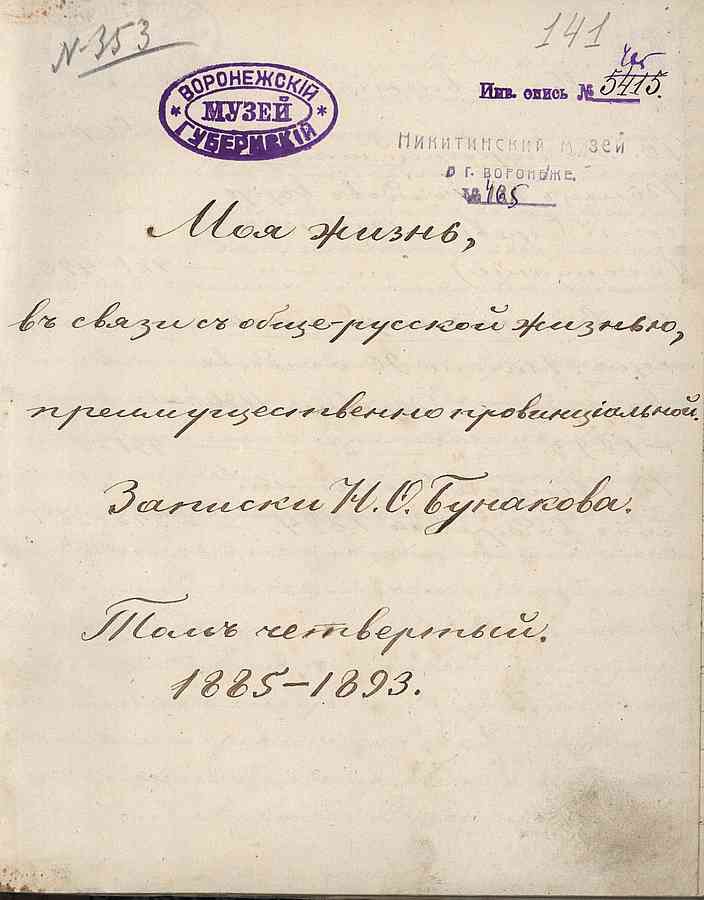 N 353
141
ВОРОНЕЖСКІЙ
* МУЗЕЙ *
ГУБЕРНСКІЙ
Инв. опись № 5415.
Никитинский музей
в г. Воронеже.
№ 485
Моя жизнь,
въ связи съ обще-русской жизнью,
преимущественно провинціальной.
Записки Н. Ѳ. Бунакова.
Томъ четвертый.
1885–1893.